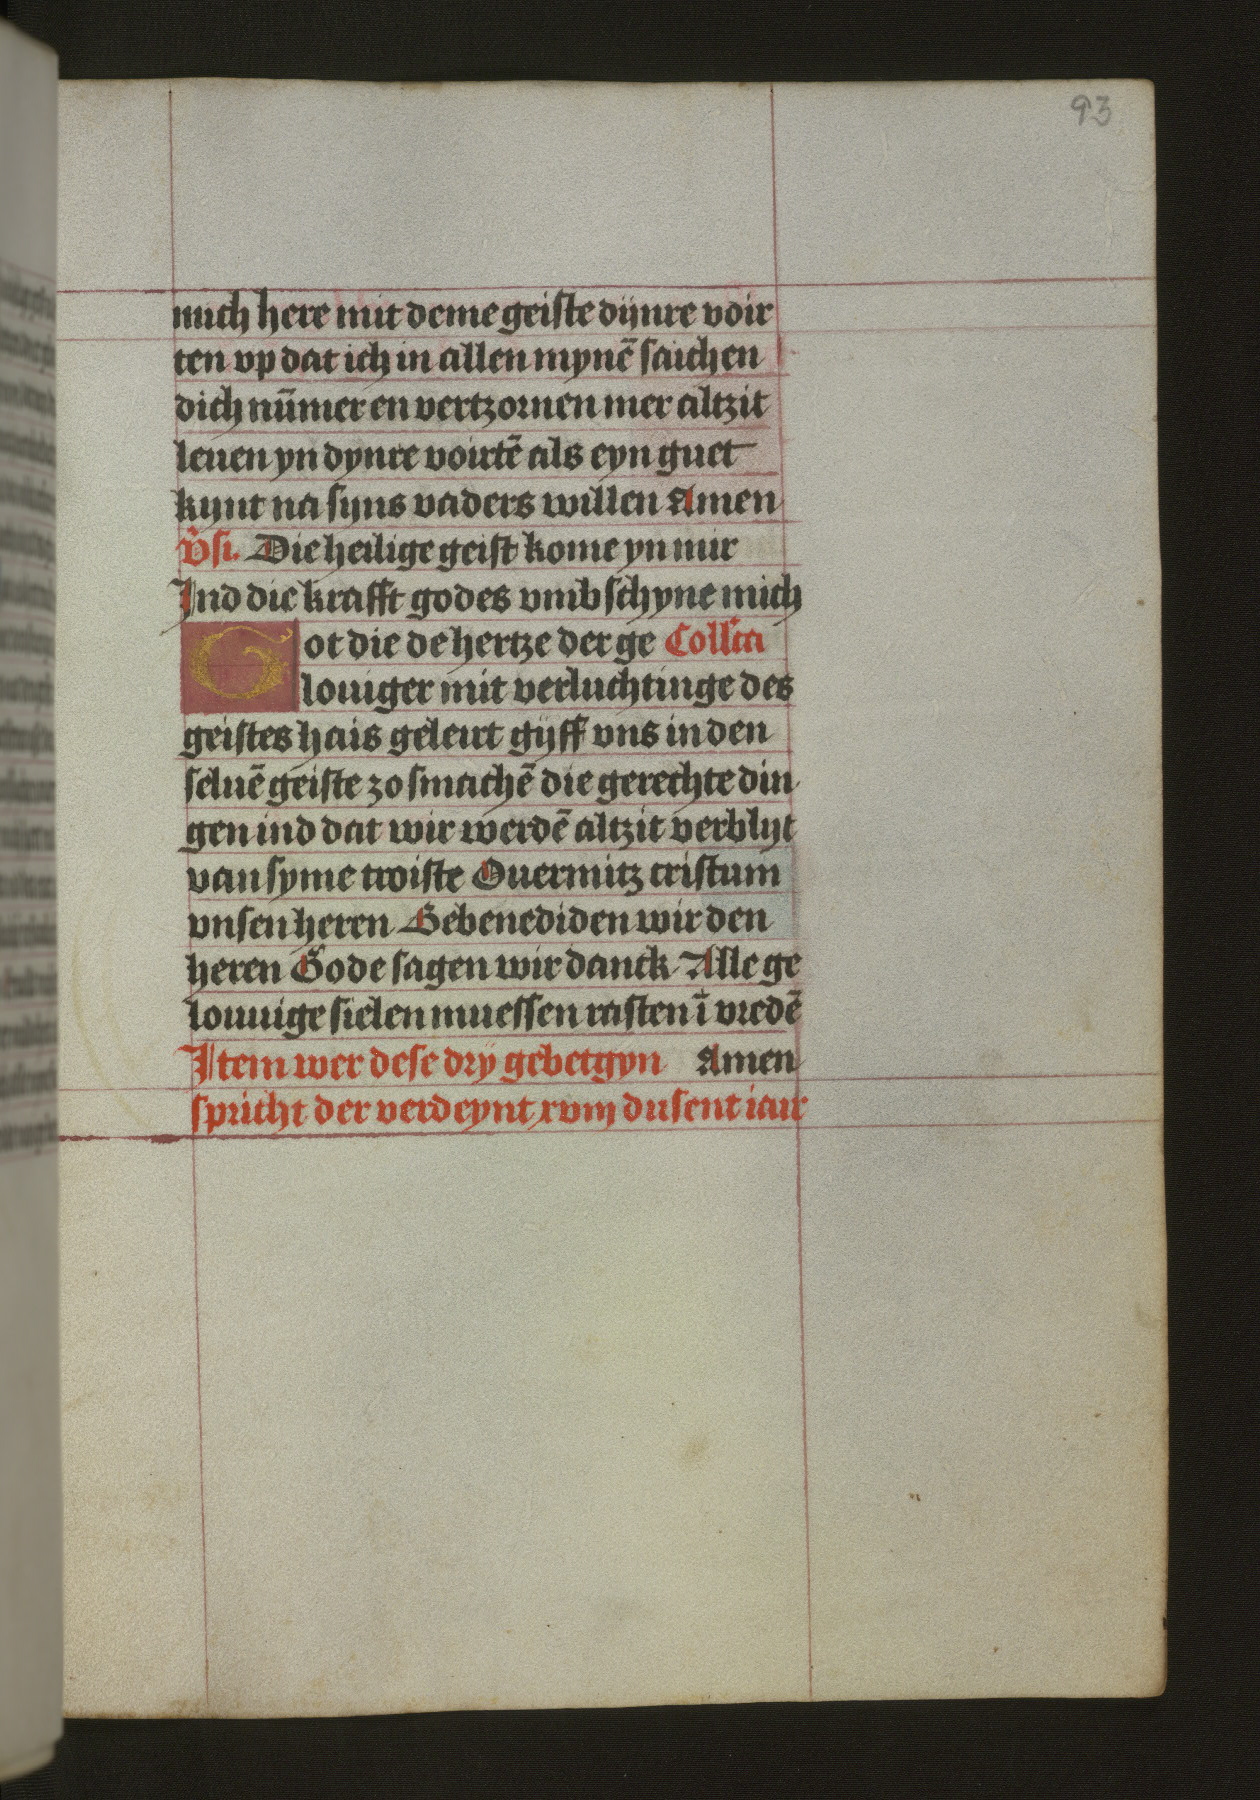 93
mich here mit deme geiste dijnre voir
ten vp dat ich in allen mynē saichen
dich nūmer en vertzornen mer altzit
leuen yn dynre voirtē als eyn guet
kynt na syns vaders willen Amen
v̄si. Die heilige geist kome yn mir
Ind die krafft godes vmbschyne mich
Got die de hertze der ge Coll'ta
louiger mit verluchtinge des
geistes hais geleirt gijff vns in den
seluē geiste zo smachē die gerechte din
gen ind dat wir werdē altzit verblijt
van syme troiste Ouermitz cristum
vnsen heren Gebenediden wir den
heren Gode sagen wir danck Alle ge
louuige sielen muessen rasten ī vredē
Item wer dese drÿ gebetgyn Amen
spricht der verdeynt xvm dusent iair